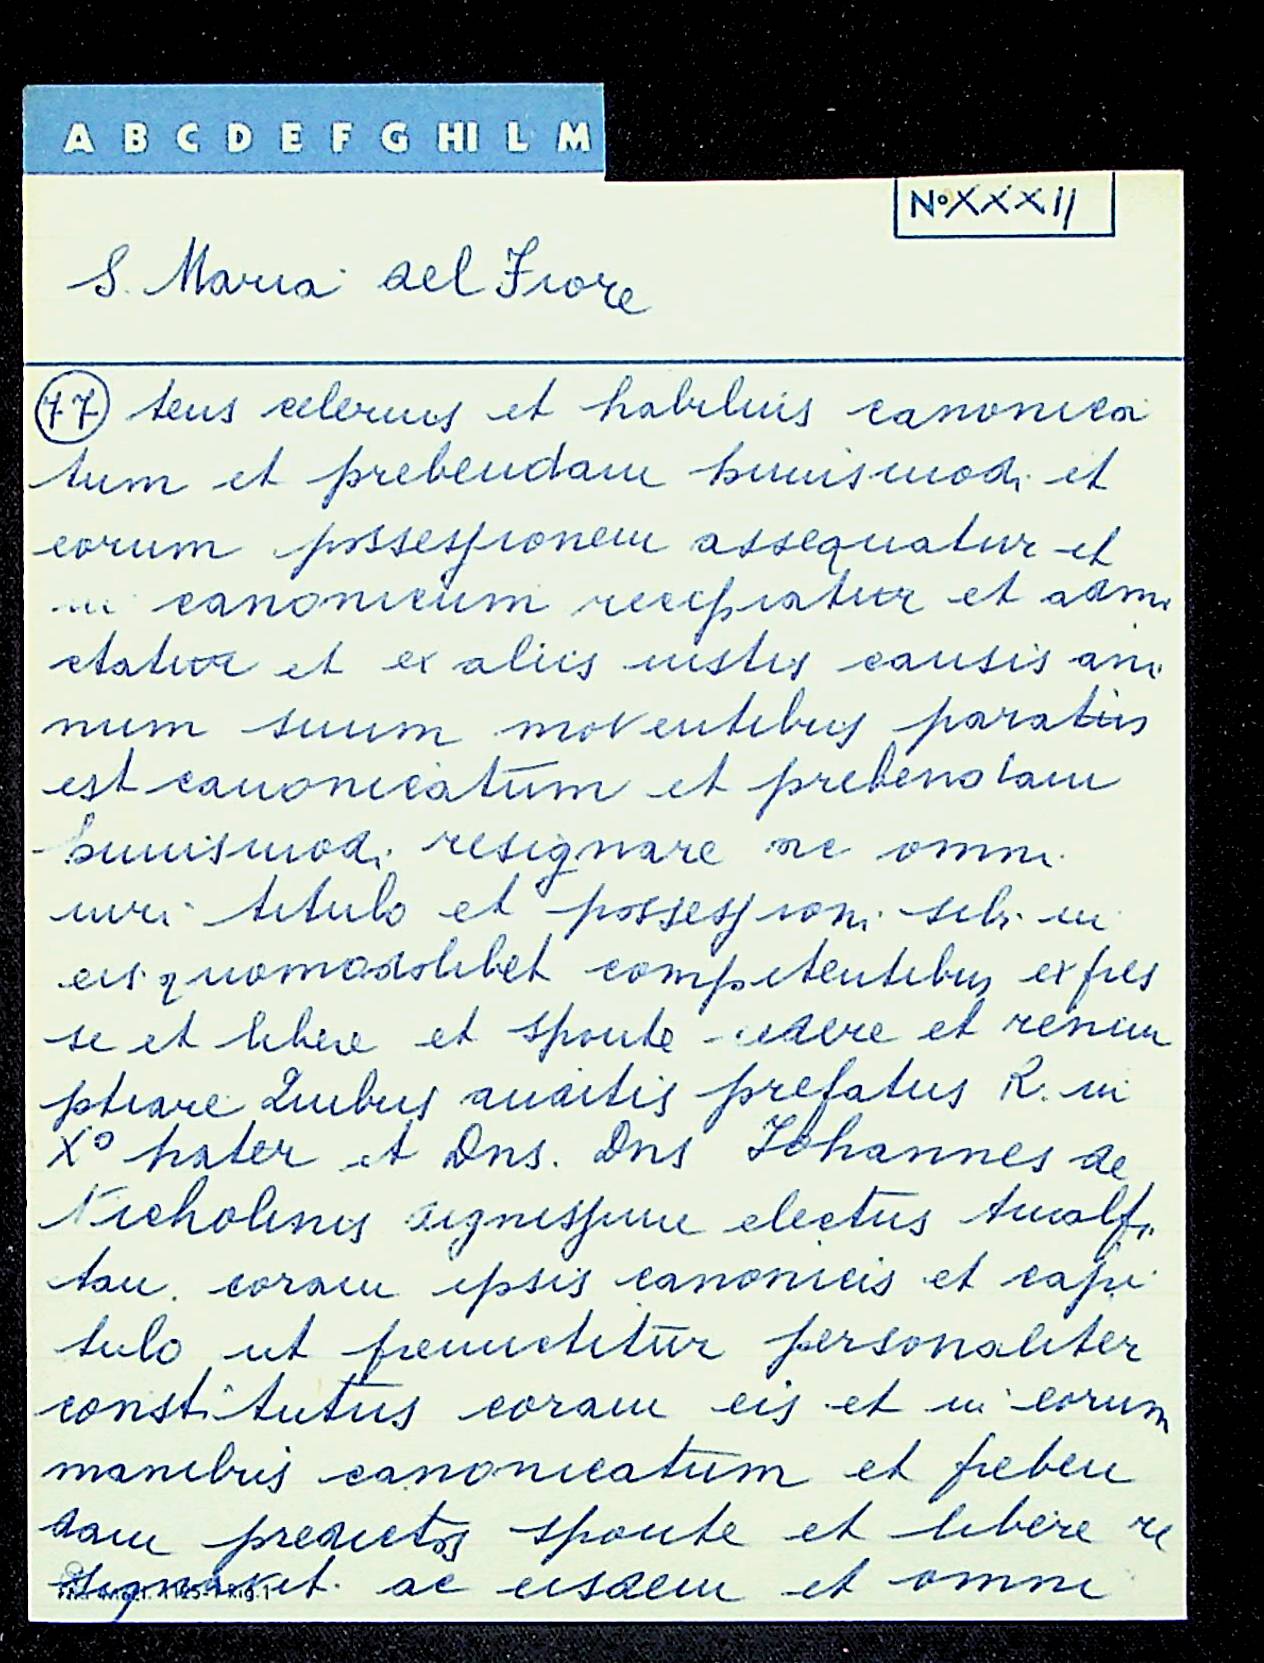 A B C D E F G HI L M
N° XXXII
S. Maria del Fiore
77 tens celerius et habilius canonica
tum et prebendam huiusmodi et
eorum possessionem assequatur et
in canonicum recipiatur et admi
ctatur et ex aliis iustis causis ani
mum suum moventibus paratus
est canonicatum et prebendam
huiusmodi resignare ac omni
iuri titulo et possessioni sibi in
eis quomodolibet competentibus expres
se et libere et sponte cedere et renun
ptiare Quibus auditis prefatus R. in
X° pater et Dns. Dns Johannes de
Nicholinis dignissime electus Amalfi
tan. coram ipsis canonicis et capi
tulo ut premictitur personaliter
constitutus coram eis et in eorum
manibus canonicatum et preben
dam predictos sponte et libere re
signavit ac eisdem et omni